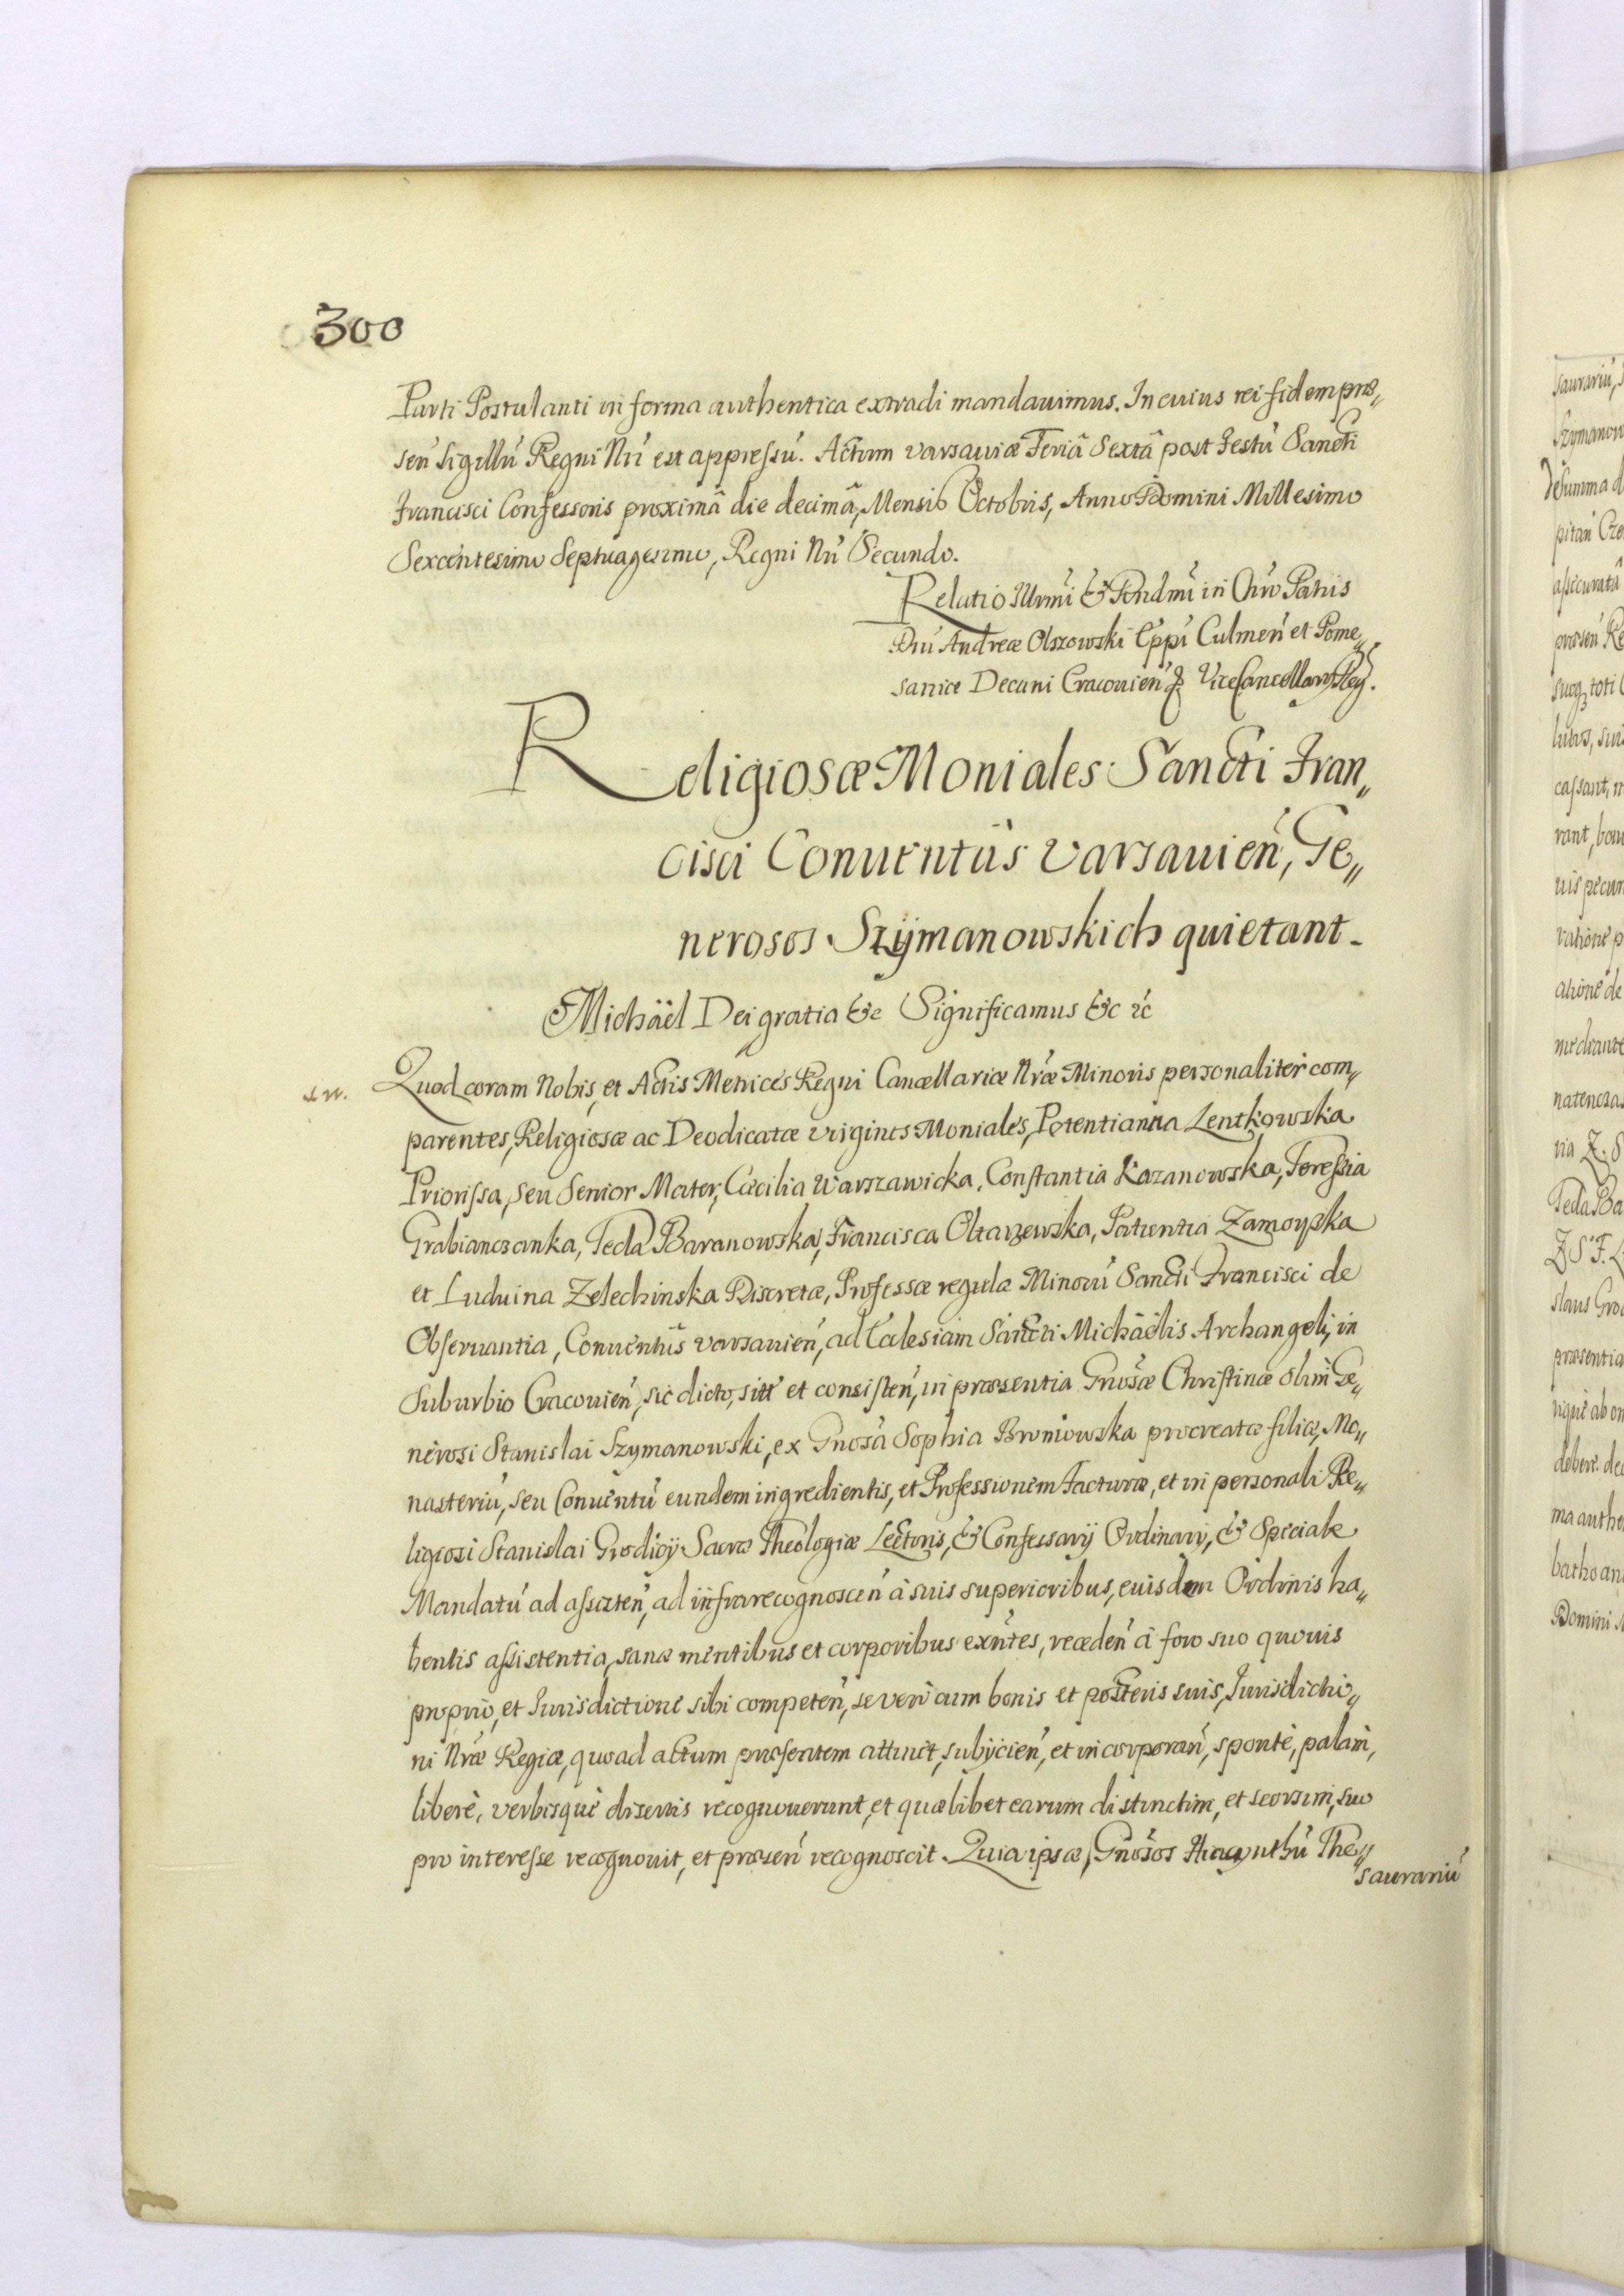 300
Parti Postulanti in forma authentica extradi mandauimus. In cuius rei fidem præ„
sen̄ Sigillū Regni Nrī est appressū. Actum Varsauiæ Feriâ Sextâ post Festū Sancti
Francisci Confessoris proximâ die decimâ, Mensis Octobris, Anno Domini Millesimo
Sexcentesimo Septuagesimo, Regni Nrī Secundo.
Relatio Illrmi & Rndmī in Chrō Patris
Dnī Andreæ Olszowski Eppī Culmen̄ et Pome„
saniæ Decani Cracouien̄ & ViceCancellarij Reg.
Religiosæ Moniales Sancti Fran„
cisci Conuentûs Varsauien̄, Ge„
nerosos Szÿmanowskich quietant.
Michäel Dei gratia &c Significamus &c &c
Quod coram Nobis, et Actis Metrices Regni Cancellariæ Nræ Minoris personaliter com„
parentes, Religiosæ ac Deodicatæ Virgines Moniales, Potentianna Lentkowska
Priorissa, seu Senior Mater, Cæcilia Warszawicka, Constantia Kazanowska, Teressia
Grabianczanka, Tecla Baranowska, Francisca Oltarzewska, Patientia Zamoyska
et Luduina Zelechinska Discretæ, Professæ regulæ Minorū Sancti Francisci de
Obseruantia, Conuentûs Varsauien̄, ad Ecclesiam Sancti Michäelis Archangeli, in
Suburbio Cracouien̄, sic dicto, sitt̄ et consisten̄, in præsentia Gnosæ Christinæ olim Ge„
nerosi Stanislai Szymanowski, ex Gnosâ Sophia Broniowska procreatæ filiæ, Mo„
nasteriū, seu Conuentū eundem ingredientis, et Professionem facturæ, et in personali Re„
ligiosi Stanislai Grodicij Sacræ Theologiæ Lectoris, & Confessarij Ordinarij, & Speciale
Mandatū ad assisten̄, ad infrarecognoscen̄ à suis superioribus, euisdem Ordinis ha„
bentis assistentia, sanæ mentibus et corporibus exn̄tes, receden̄ à foro suo quouis
proprio, et Jurisdictione sibi competen̄, se verò cum bonis et posteris suis, Jurisdictio„
ni Nræ Regiæ, quoad actum præsentem attinet, subijcien̄, et incorporan̄, spontè, palàm,
liberè, verbisquè disertis recognouerunt, et quælibet earum distinctim, et seorsim, suo
pro interesse recognouit, et præsen̄ recognoscit. Quia ipsæ, Gnosos Hiacynthū The„
saurariū